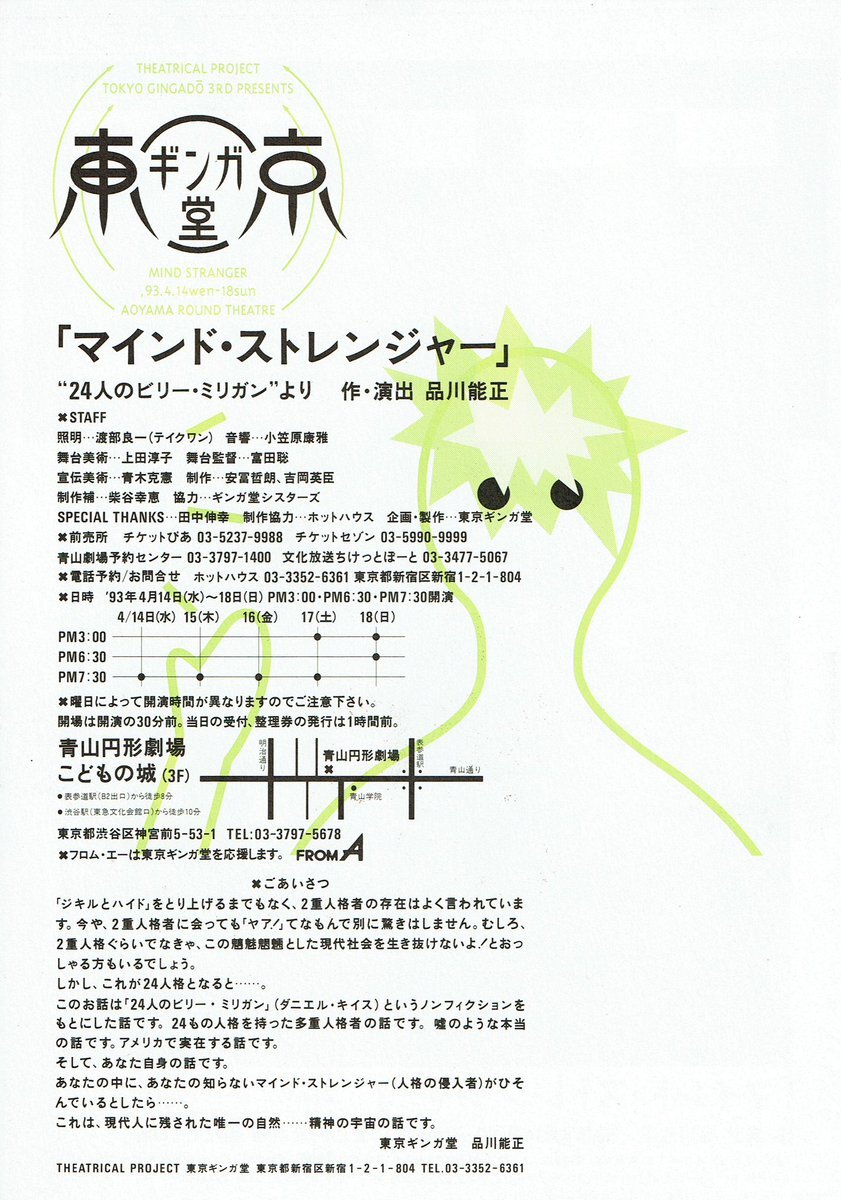 THEATRICAL PROJECT
TOKYO GINGADŌ 3RD PRESENTS
東京
ギンガ
堂
MIND STRANGER
,93.4.14wen-18sun
AOYAMA ROUND THEATRE
「マインド・ストレンジャー」
“24人のビリー・ミリガン”より 作・演出 品川能正
✖STAFF
照明…渡部良一(テイクワン) 音響…小笠原康雅
舞台美術…上田淳子 舞台監督…富田聡
宣伝美術…青木克憲 制作…安冨哲朗、吉岡英臣
制作補…柴谷幸恵 協力…ギンガ堂シスターズ
SPECIAL THANKS…田中伸幸 制作協力…ホットハウス 企画・製作…東京ギンガ堂
✖前売所 チケットぴあ 03-5237-9988 チケットセゾン 03-5990-9999
青山劇場予約センター 03-3797-1400 文化放送ちけっとぽーと 03-3477-5067
✖電話予約/お問合せ ホットハウス 03-3352-6361 東京都新宿区新宿1-2-1-804
✖日時 '93年4月14日(水)〜18日(日) PM3:00・PM6:30・PM7:30開演
4/14日(水) 15(木) 16(金) 17(土) 18(日)
PM3:00
PM6:30
PM7:30
✖曜日によって開演時間が異なりますのでご注意下さい。
開場は開演の30分前。当日の受付、整理券の発行は1時間前。
青山円形劇場
こどもの城(3F)
●表参道駅(B2出口)から徒歩8分
●渋谷駅(東急文化会館口)から徒歩10分
明治通り
青山円形劇場
✖
表参道駅
青山通り
青山学院
東京都渋谷区神宮前5-53-1 TEL:03-3797-5678
✖フロム・エーは東京ギンガ堂を応援します。 FROM A
✖ごあいさつ
「ジキルとハイド」をとり上げるまでもなく、2重人格者の存在はよく言われていま
す。今や、2重人格者に会っても「ヤア!」てなもんで別に驚きはしません。むしろ、
2重人格ぐらいでなきゃ、この魑魅魍魎とした現代社会を生き抜けないよ!とおっ
しゃる方もいるでしょう。
しかし、これが24人格となると……。
このお話は「24人のビリー・ミリガン」(ダニエル・キイス)というノンフィクションを
もとにした話です。24もの人格を持った多重人格者の話です。嘘のような本当
の話です。アメリカで実在する話です。
そして、あなた自身の話です。
あなたの中に、あなたの知らないマインド・ストレンジャー(人格の侵入者)がひそ
んでいるとしたら……。
これは、現代人に残された唯一の自然……精神の宇宙の話です。
東京ギンガ堂 品川能正
THEATRICAL PROJECT 東京ギンガ堂 東京都新宿区新宿1-2-1-804 TEL.03-3352-6361